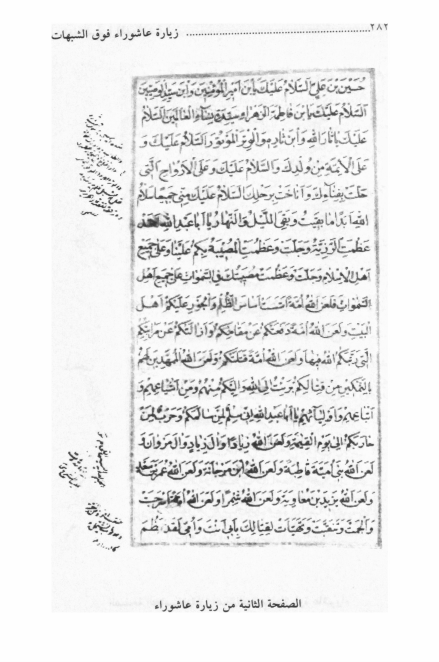 ٢٨٢ ........................................................ زيارة عاشوراء فوق الشبهات
حُسَيْنِ بْنِ عَلِيٍّ اَلسَّلامُ عَلَيْكَ يَا بْنَ اَميرِ الْمُؤْمِنينَ وَابْنَ سَيِّدِ الْوَصِيّينَ
اَلسَّلامُ عَلَيْكَ يَا بْنَ فاطِمَةَ الزَّهْراءِ سَيِّدَةِ نِساءِ الْعالَمينَ اَلسَّلامُ
عَلَيْكَ يا ثارَ اللهِ وَابْنَ ثارِهِ وَالْوِتْرَ الْمَوْتُورَ اَلسَّلامُ عَلَيْكَ وَ
عَلَى الْاَئِمَّةِ مِنْ وُلْدِكَ وَالسَّلامُ عَلَيْكَ وَعَلَى الْاَرْواحِ الَّتي
حَلَّتْ بِفِنائِكَ وَاَناخَتْ بِرَحْلِكَ السَّلامُ عَلَيْكَ مِنّي جَميعًا سَلامُ
اللهِ اَبَدًا ما بَقيتُ وَبَقِيَ اللَّيْلُ وَالنَّهارُ يا اَبا عَبْدِ اللهِ لَقَدْ
عَظُمَتِ الرَّزِيَّةُ وَجَلَّتْ وَعَظُمَتِ الْمُصيبَةُ بِكُمْ عَلَيْنا وَعَلى جَميعِ
اَهْلِ الْاِسْلامِ وَجَلَّتْ وَعَظُمَتْ مُصيبَتُكَ فِي السَّمواتِ عَلى جَميعِ اَهْلِ
السَّمواتِ فَلَعَنَ اللهُ اُمَّةً اَسَّسَتْ اَساسَ الظُّلْمِ وَالْجَوْرِ عَلَيْكُمْ اَهْلَ
الْبَيْتِ وَلَعَنَ اللهُ اُمَّةً دَفَعَتْكُمْ عَنْ مَقامِكُمْ وَاَزالَتْكُمْ عَنْ مَراتِبِكُمُ
الَّتي رَتَّبَكُمُ اللهُ فيها وَلَعَنَ اللهُ اُمَّةً قَتَلَتْكُمْ وَلَعَنَ اللهُ الْمُمَهِّدينَ لَهُمْ
بِالتَّمْكينِ مِنْ قِتالِكُمْ بَرِئْتُ اِلَى اللهِ وَاِلَيْكُمْ مِنْهُمْ وَمِنْ اَشْياعِهِمْ وَ
اَتْباعِهِمْ وَاَوْلِيائِهِمْ يا اَبا عَبْدِ اللهِ اِنّي سِلْمٌ لِمَنْ سالَمَكُمْ وَحَرْبٌ لِمَنْ
حارَبَكُمْ اِلى يَوْمِ الْقِيمَةِ وَلَعَنَ اللهُ زِيادًا وَآلَ زِيادٍ وَآلَ مَرْوانَ
لَعَنَ اللهُ بَني اُمَيَّةَ قاطِبَةً وَلَعَنَ اللهُ ابْنَ مَرْجانَةَ وَلَعَنَ اللهُ عُمَرَ بْنَ سَعْدٍ
وَلَعَنَ اللهُ يَزيدَ بْنَ مُعاوِيَةَ وَلَعَنَ اللهُ شِمْرًا وَلَعَنَ اللهُ اُمَّةً اَسْرَجَتْ
وَاَلْجَمَتْ وَتَنَقَّبَتْ وَتَهَيَّأَتْ لِقِتالِكَ بِاَبي اَنْتَ وَاُمّي لَقَدْ عَظُمَ
الصفحة الثانية من زيارة عاشوراء